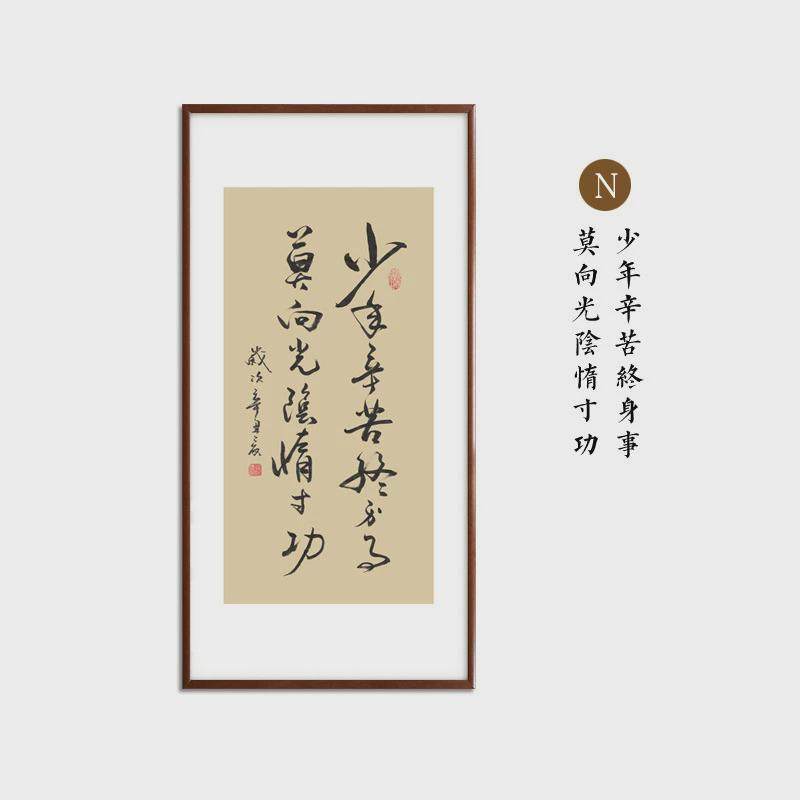 少年辛苦終身事
莫向光陰惰寸功
歲次辛丑之夜
N
少年辛苦終身事
莫向光陰惰寸功